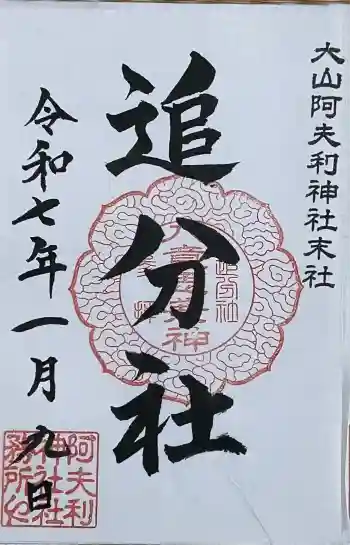 大山阿夫利神社末社
追分社
令和七年一月九日
阿夫利
神社社
務所之